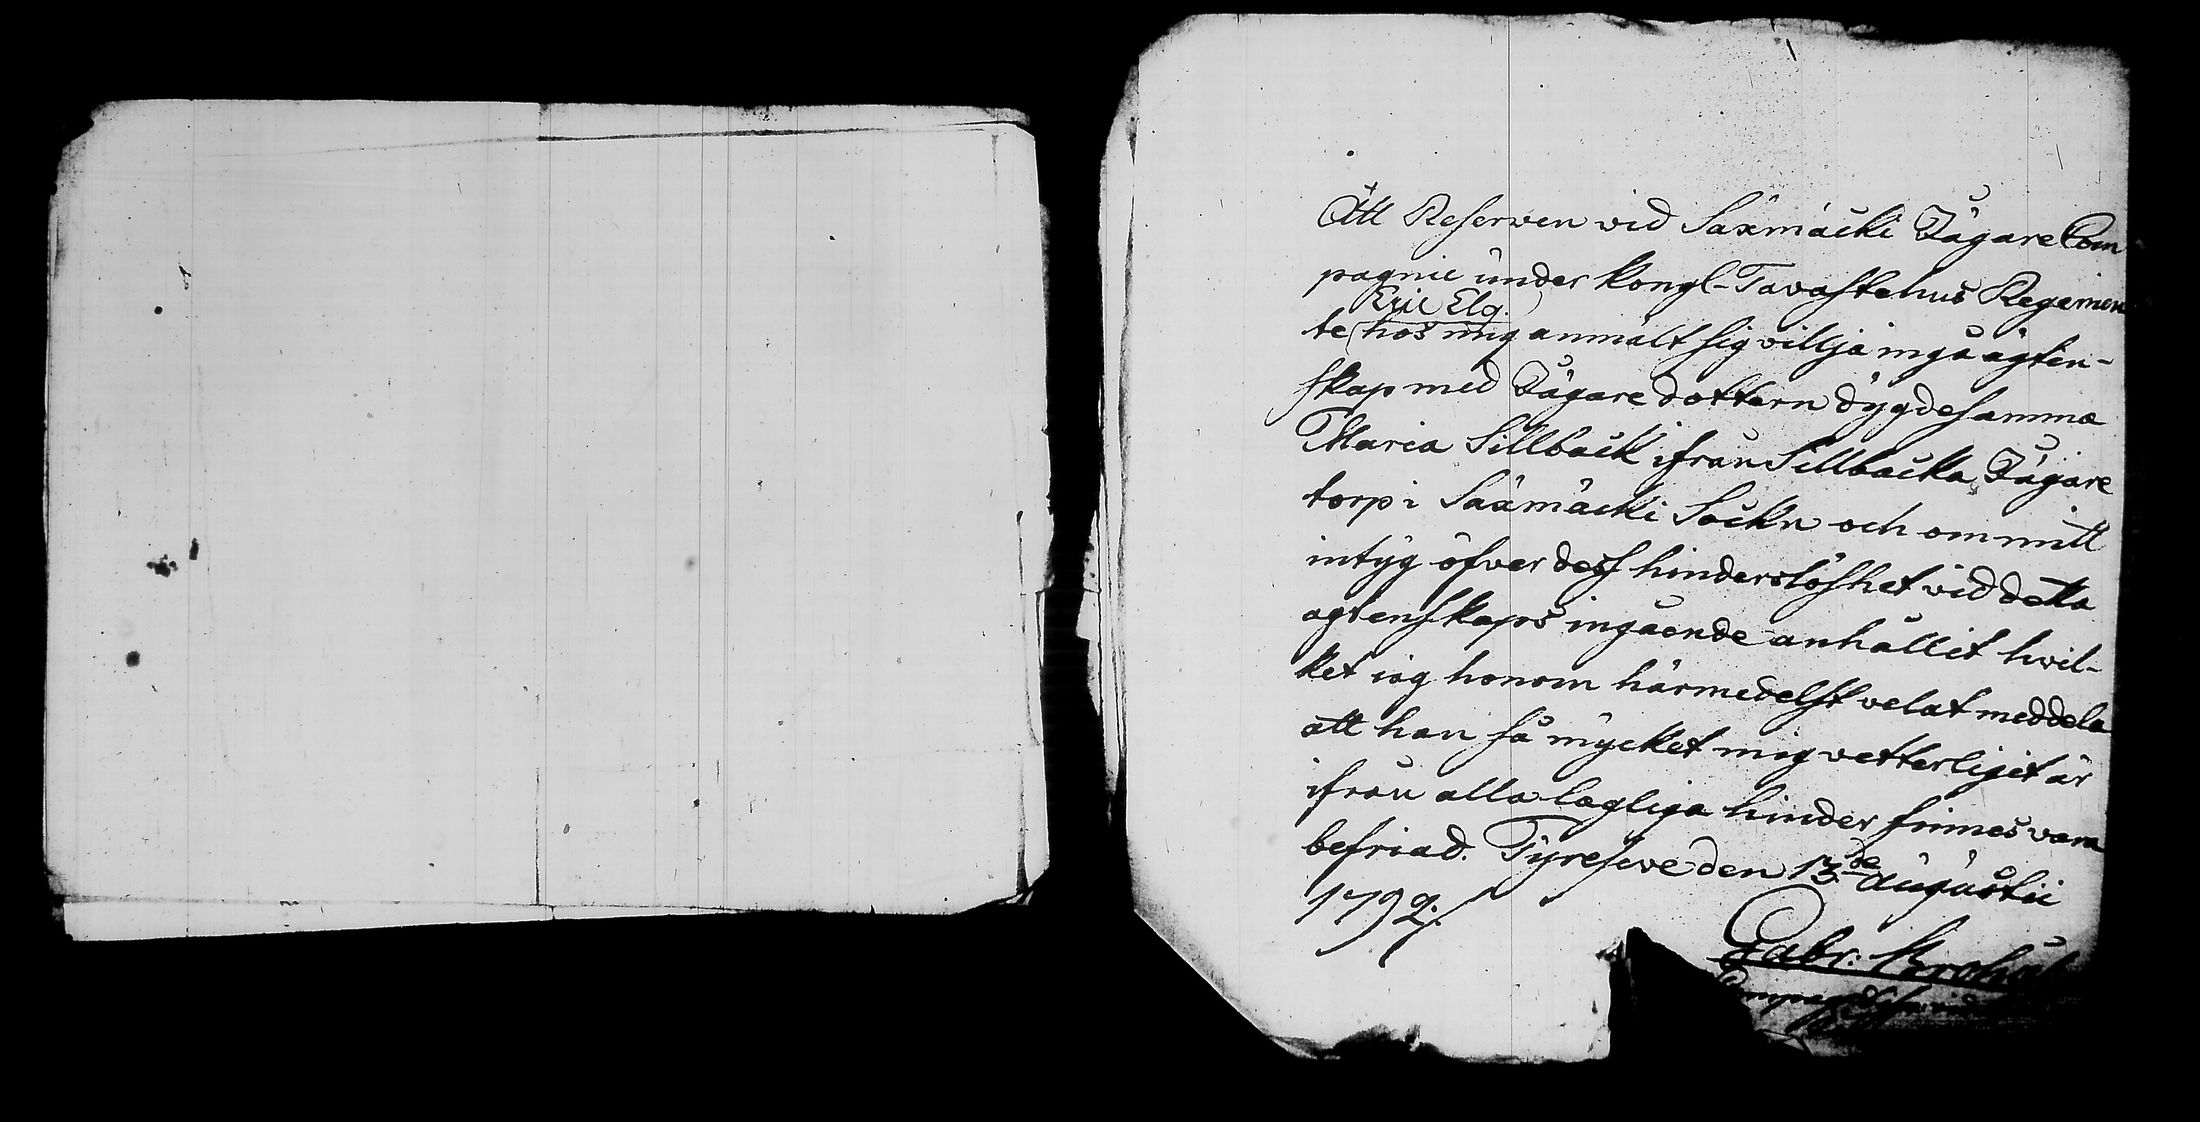 Att Reserven vid Saxmäcki Jägare Com
pagnie under Kongl- Tavastehus Regemen
Eric Elg.
te hos mig anmält sig villja ingå ägten-
skap med Jägare dottern dygdesamma
Maria Sillback ifrån Sillbacka Jägare
torp i Saxmäcki Sockn och om mitt
intyg öfver dess hinderslöshet vid detta
ägtenskaps ingående anhållit hvil-
ket iag honom härmedelst velat meddela
att han så mycket mig vetterligit är
ifrån alla lagliga hinder finnes vara
befriad. Tyrefwe den 13de Augustii
1792.
Gabr.